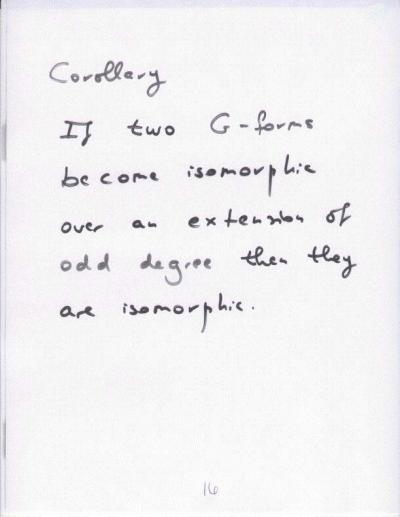 Corollary
If two G-forms
become isomorphic
over an extension of
odd degree then they
are isomorphic.
16